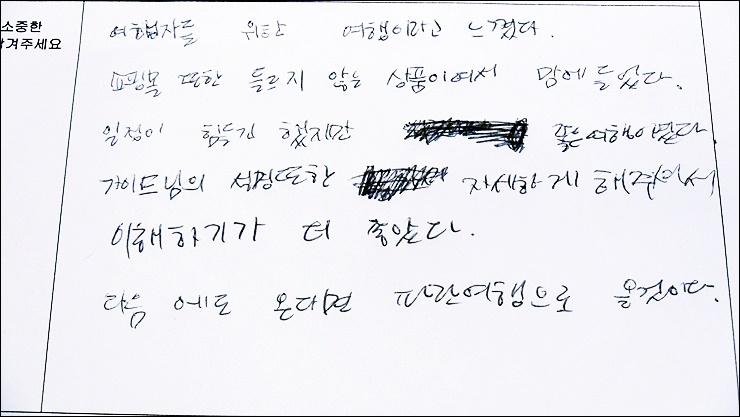 소중한
남겨주세요
여행자를 위한 여행이라고 느꼈다.
쇼핑몰 또한 들르지 않는 상품이여서 맘에 들었다.
일정이 힘들긴 했지만 좋은여행이였다
가이드님의 설명또한 자세하게 해주셔서
이해하기가 더 좋았다.
다음 에도 온다면 파란여행으로 올것이다.